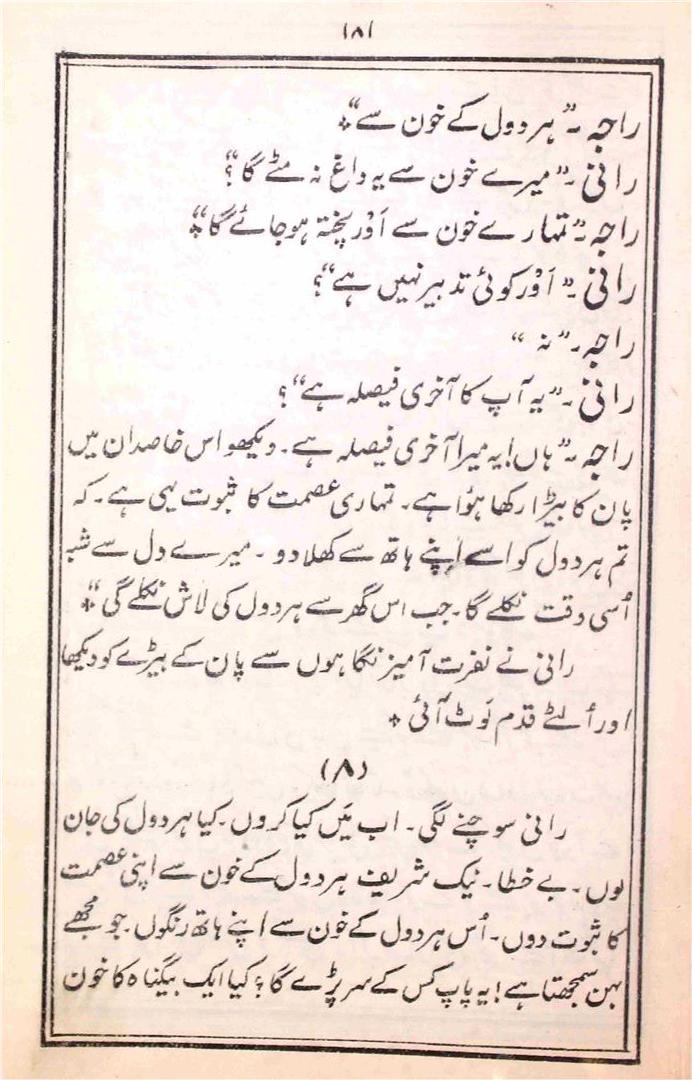 ۱۸۱
راجہ ۔ " ہردول کے خون سے " *
رانی ۔ " میرے خون سے یہ داغ نہ مٹے گا " ؟
راجہ ۔ " تمہارے خون سے اَوْر پختہ ہوجائے گا " *
رانی ۔ " اَوْر کوئی تدبیر نہیں ہے " ؟
راجہ ۔ " نہ "
رانی ۔ " یہ آپ کا آخری فیصلہ ہے " ؟
راجہ ۔ " ہاں! یہ میرا آخری فیصلہ ہے ۔ دیکھو اس خاصدان میں
پان کا بیڑا رکھا ہؤا ہے ۔ تمہاری عصمت کا ثبوت یہی ہے ۔ کہ
تم ہردول کو اسے اپنے ہاتھ سے کھلا دو ۔ میرے دل سے شبہ
اُسی وقت نکلے گا ۔ جب اس گھر سے ہردول کی لاش نکلے گی " *
رانی نے نفرت آمیز نگاہوں سے پان کے بیڑے کو دیکھا
اور اُلٹے قدم لَوٹ آئی *
(۸)
رانی سوچنے لگی ۔ اب مَیں کیا کروں ۔ کیا ہردول کی جان
لوں ۔ بے خطا ۔ نیک شریف ہردول کے خون سے اپنی عصمت
کا ثبوت دوں ۔ اُس ہردول کے خون سے اپنے ہاتھ رنگوں ۔ جو مجھے
بہن سمجھتا ہے! یہ پاپ کس کے سر پڑے گا؟ کیا ایک بیگناہ کا خون